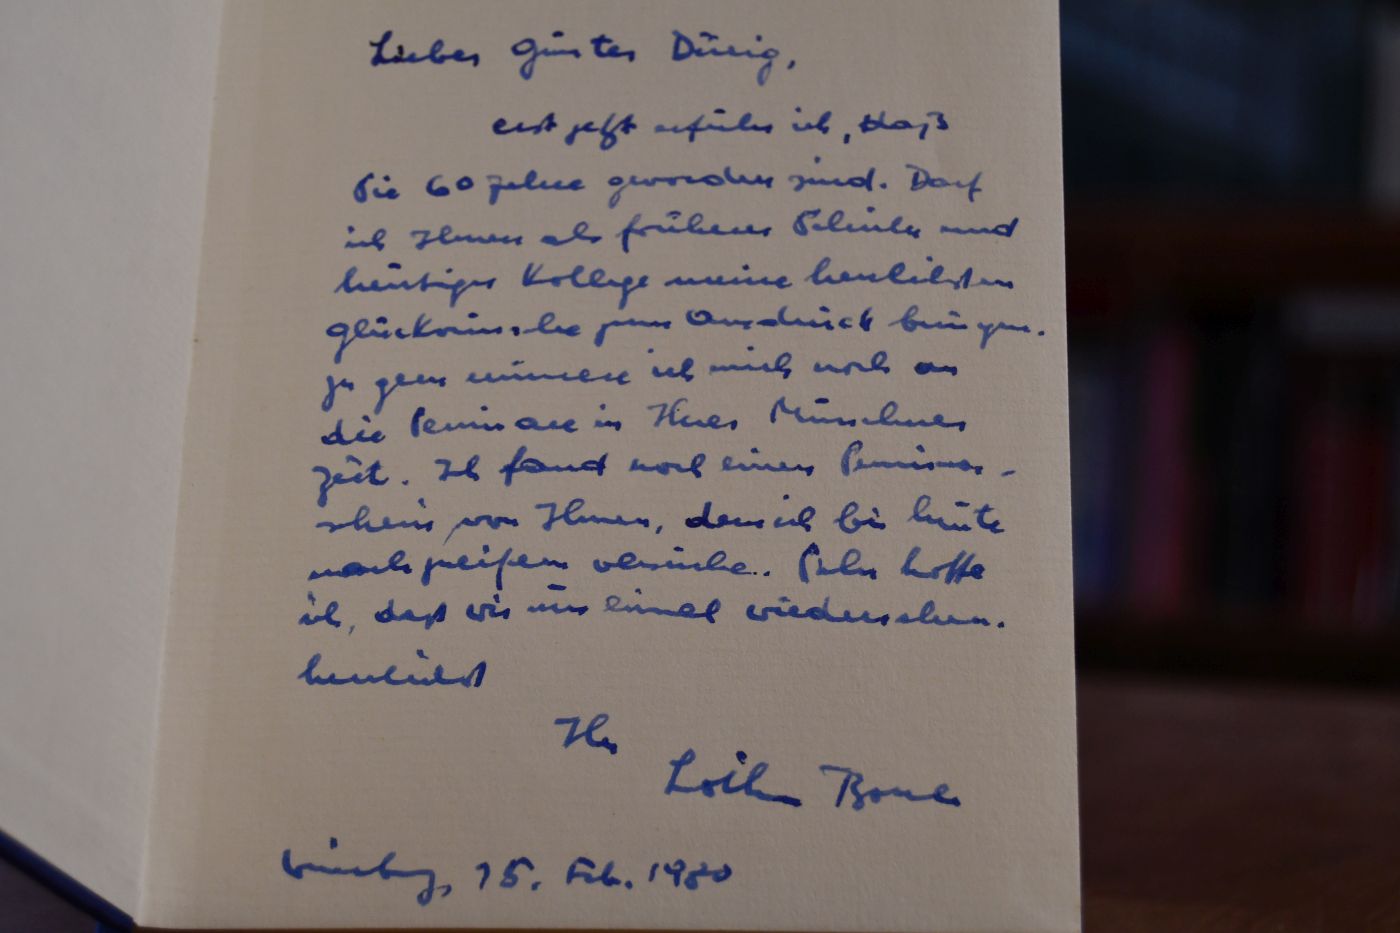 Lieber Günter Dürig,
erst jetzt erfuhr ich, daß
Sie 60 Jahre geworden sind. Darf
ich Ihnen als früherer Schüler und
heutiger Kollege meine herzlichsten
Glückwünsche zum Ausdruck bringen.
Zu gern erinnere ich mich noch an
die Seminare in Ihrer Münchner
Zeit. Ich fand noch einen Seminar-
schein von Ihnen, dem ich bis heute
nachzueifern versuche. Sehr hoffe
ich, daß wir uns einmal wiedersehen.
herzlichst
Ihr
Lothar
Würzburg, 15. Feb. 1980